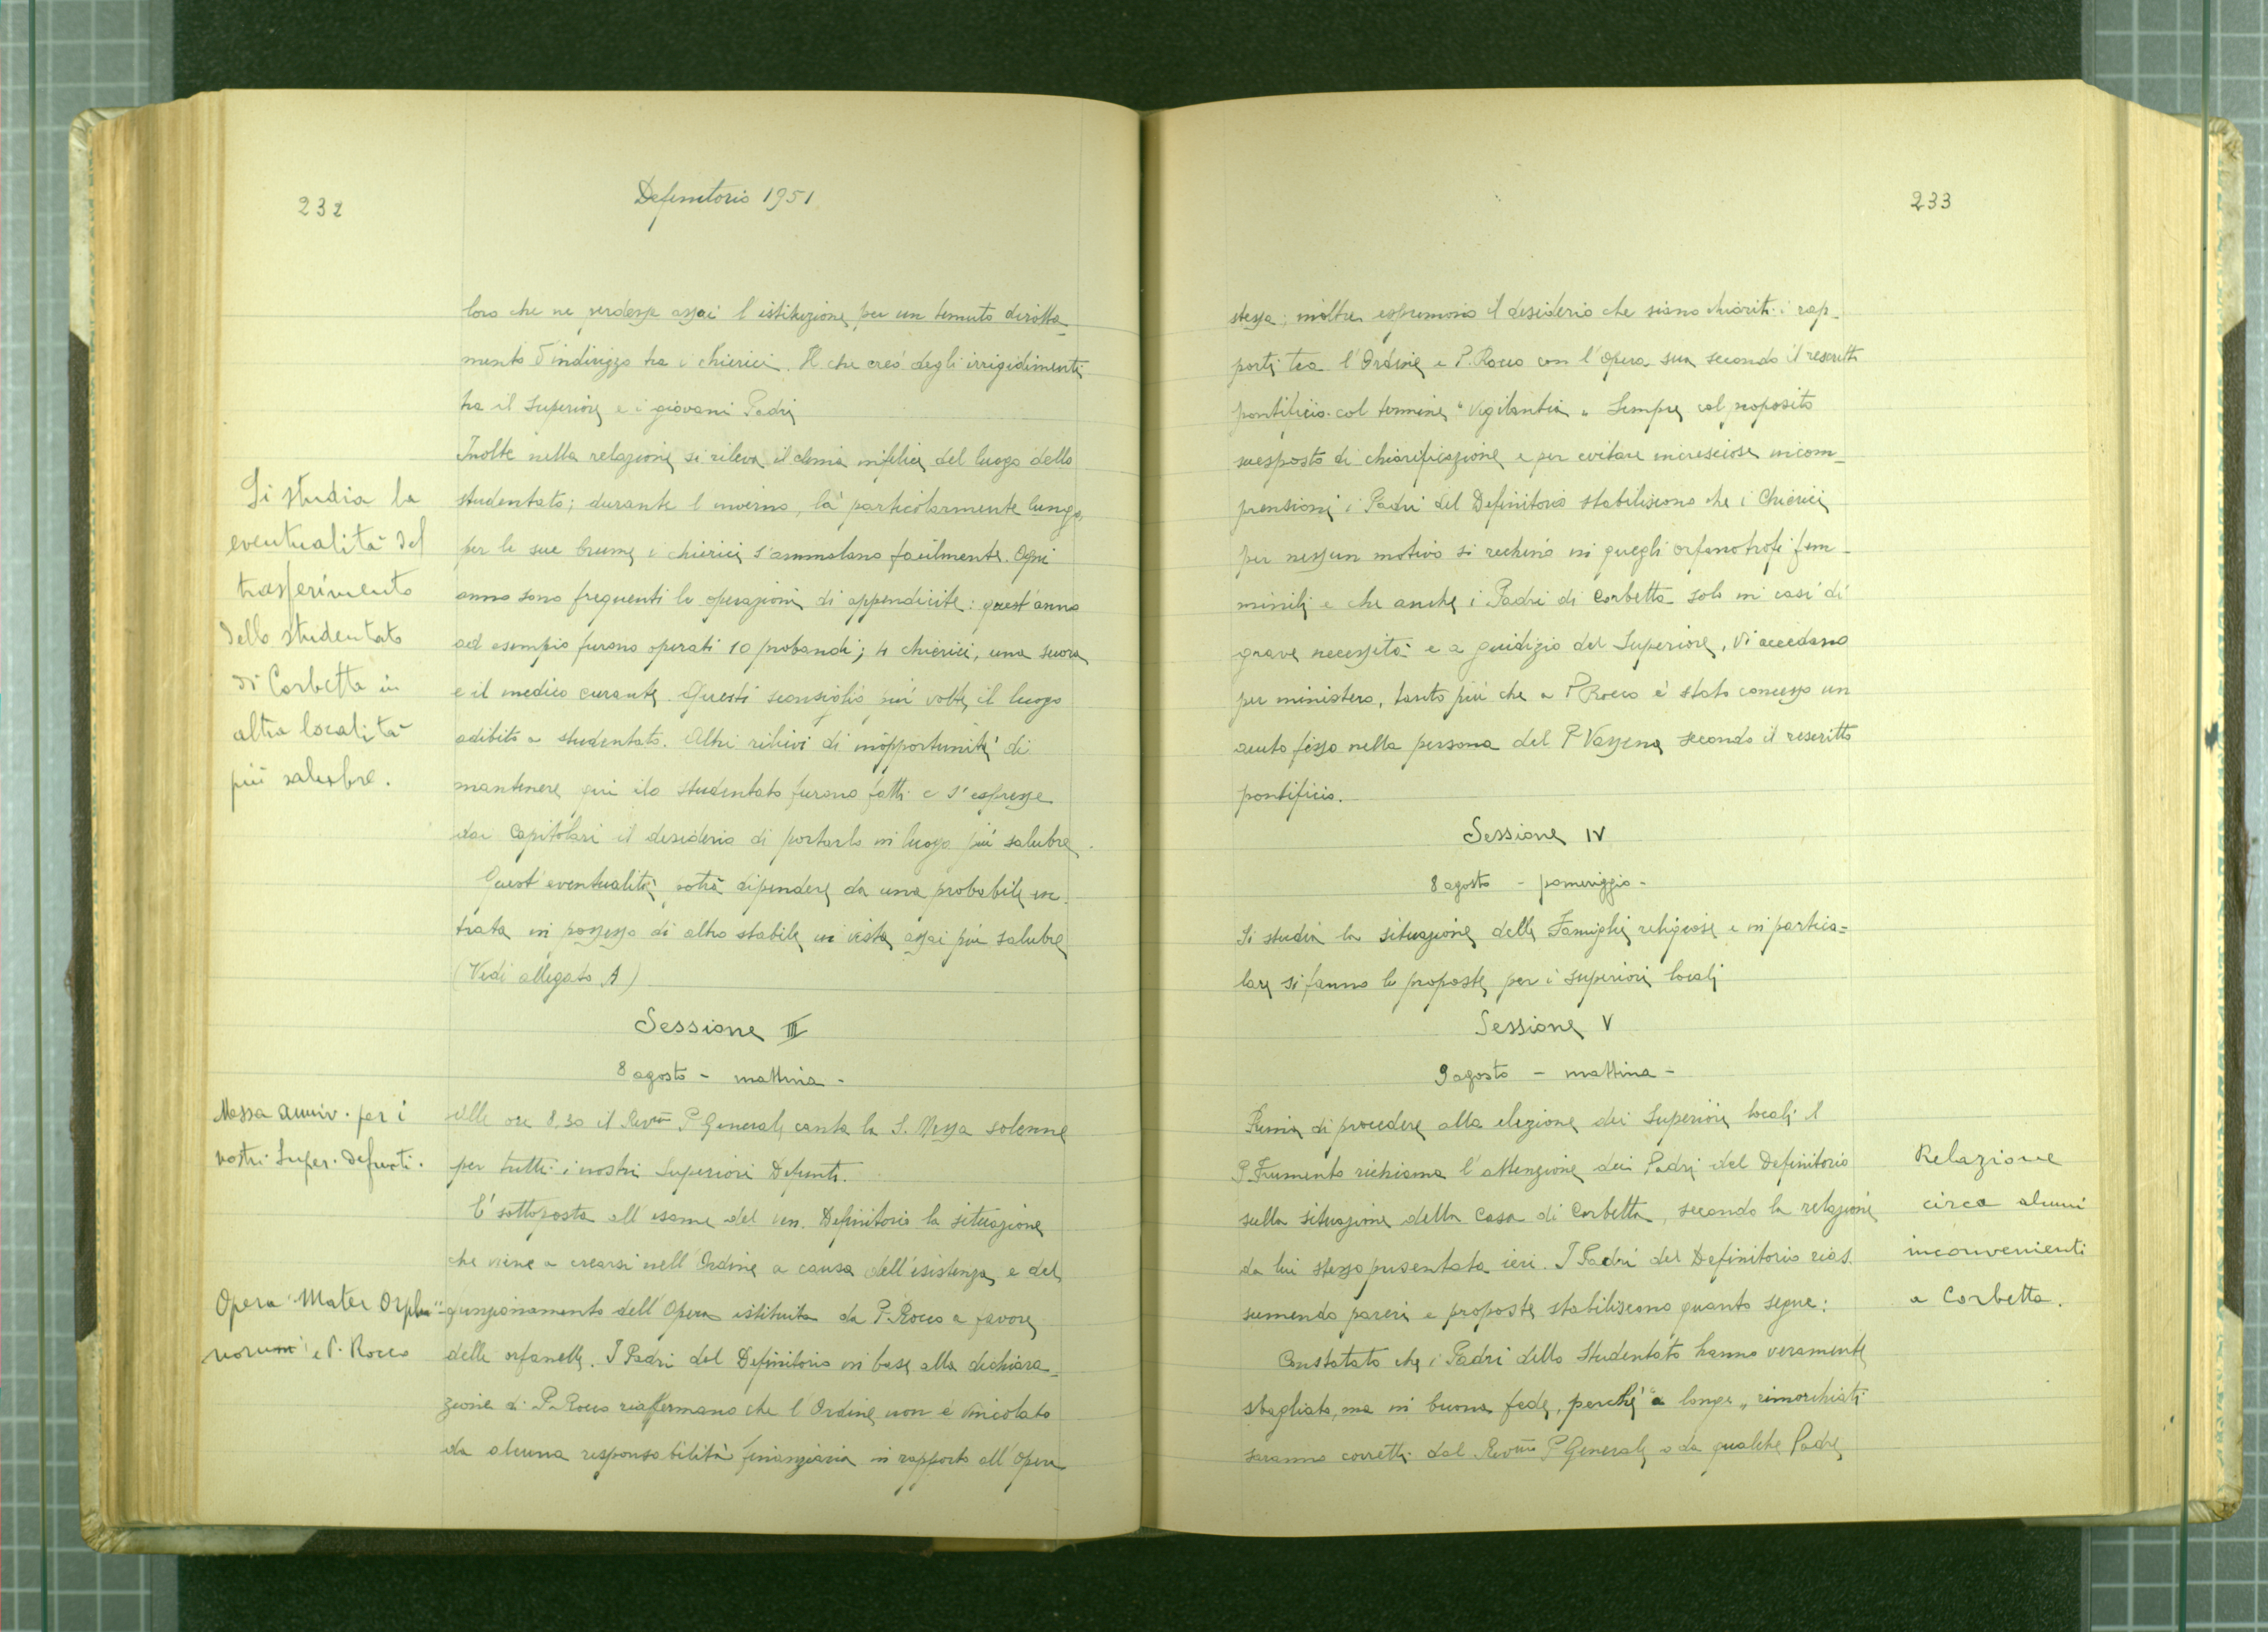 232
Definitorio 1951
loro che ne perdesse assai l'istituzione, per un temuto dirotta-
mento d'indirizzo tra i chierici. Il che creò degli irrigidimenti
tra il Superiore e i giovani Padri
Inoltre nella relazione si rileva il clima infelice del luogo dello
studentato; durante l'inverno, là particolarmente lungo,
per le sue brume, i chierici s'ammalano facilmente. Ogni
anno sono frequenti le operazioni di appendicite: quest'anno
ad esempio furono operati 10 probandi; 4 chierici, una suora
e il medico curante. Questi sconsigliò più volte il luogo
adibito a studentato. Altri rilievi di inopportunità di
mantenere qui lo studentato furono fatti e s'espresse
dai Capitolari il desiderio di portarlo in luogo più salubre.
Quest'eventualità, potrà dipendere da una probabile en-
trata in possesso di altro stabile in vista assai più salubre
(Vedi allegato A)
Si studia la
eventualità del
trasferimento
dello studentato
di Corbetta in
altra località
più salubre.
Sessione III
8 agosto - mattina -
Messa anniv. per i
nostri Super. defunti.
Alle ore 8,30 il Rev.mo P. Generale canta la S. Messa solenne
per tutti i nostri Superiori Defunti.
E' sottoposta all'esame del ven. Definitorio la situazione
che viene a crearsi nell'Ordine a causa dell'esistenza e del
funzionamento dell'Opera istituita da P. Rocco a favore
delle orfanelle. I Padri del Definitorio in base alla dichiara-
zione di P. Rocco riaffermano che l'Ordine non è vincolato
da alcuna responsabilità finanziaria in rapporto all'Opera
Opera "Mater Orpha-
norum" e P. Rocco
233
stessa; inoltre esprimono il desiderio che siano chiariti i rap-
porti tra l'Ordine e P. Rocco con l'opera sua secondo il rescritto
pontificio col termine "Vigilantia" Sempre col proposito
suesposto di chiarificazione e per evitare incresciose incom-
prensioni i Padri del Definitorio stabiliscono che i Chierici
per nessun motivo si rechino in quegli orfanotrofi fem-
minili e che anche i Padri di Corbetta solo in casi di
grave necessità e a giudizio del Superiore, vi accedano
per ministero, tanto più che a P. Rocco è stato concesso un
aiuto fisso nella persona del P. Vassena secondo il rescritto
pontificio.
Sessione IV
8 agosto - pomeriggio -
Si studia la situazione delle Famiglie religiose e in partico=
lare si fanno le proposte per i superiori locali
Sessione V
9 agosto - mattina -
Prima di procedere alla elezione dei Superiori locali il
P. Frumento richiama l'attenzione dei Padri del Definitorio
sulla situazione della Casa di Corbetta, secondo la relazione
da lui stesso presentata ieri. I Padri del Definitorio rias-
sumendo pareri e proposte stabiliscono quanto segue:
Constatato che i Padri dello Studentato hanno veramente
sbagliato, ma in buona fede, perché "a longe" rimorchiati
saranno corretti dal Rev.mo P. Generale o da qualche Padre
Relazione
circa alcuni
inconvenienti
a Corbetta.